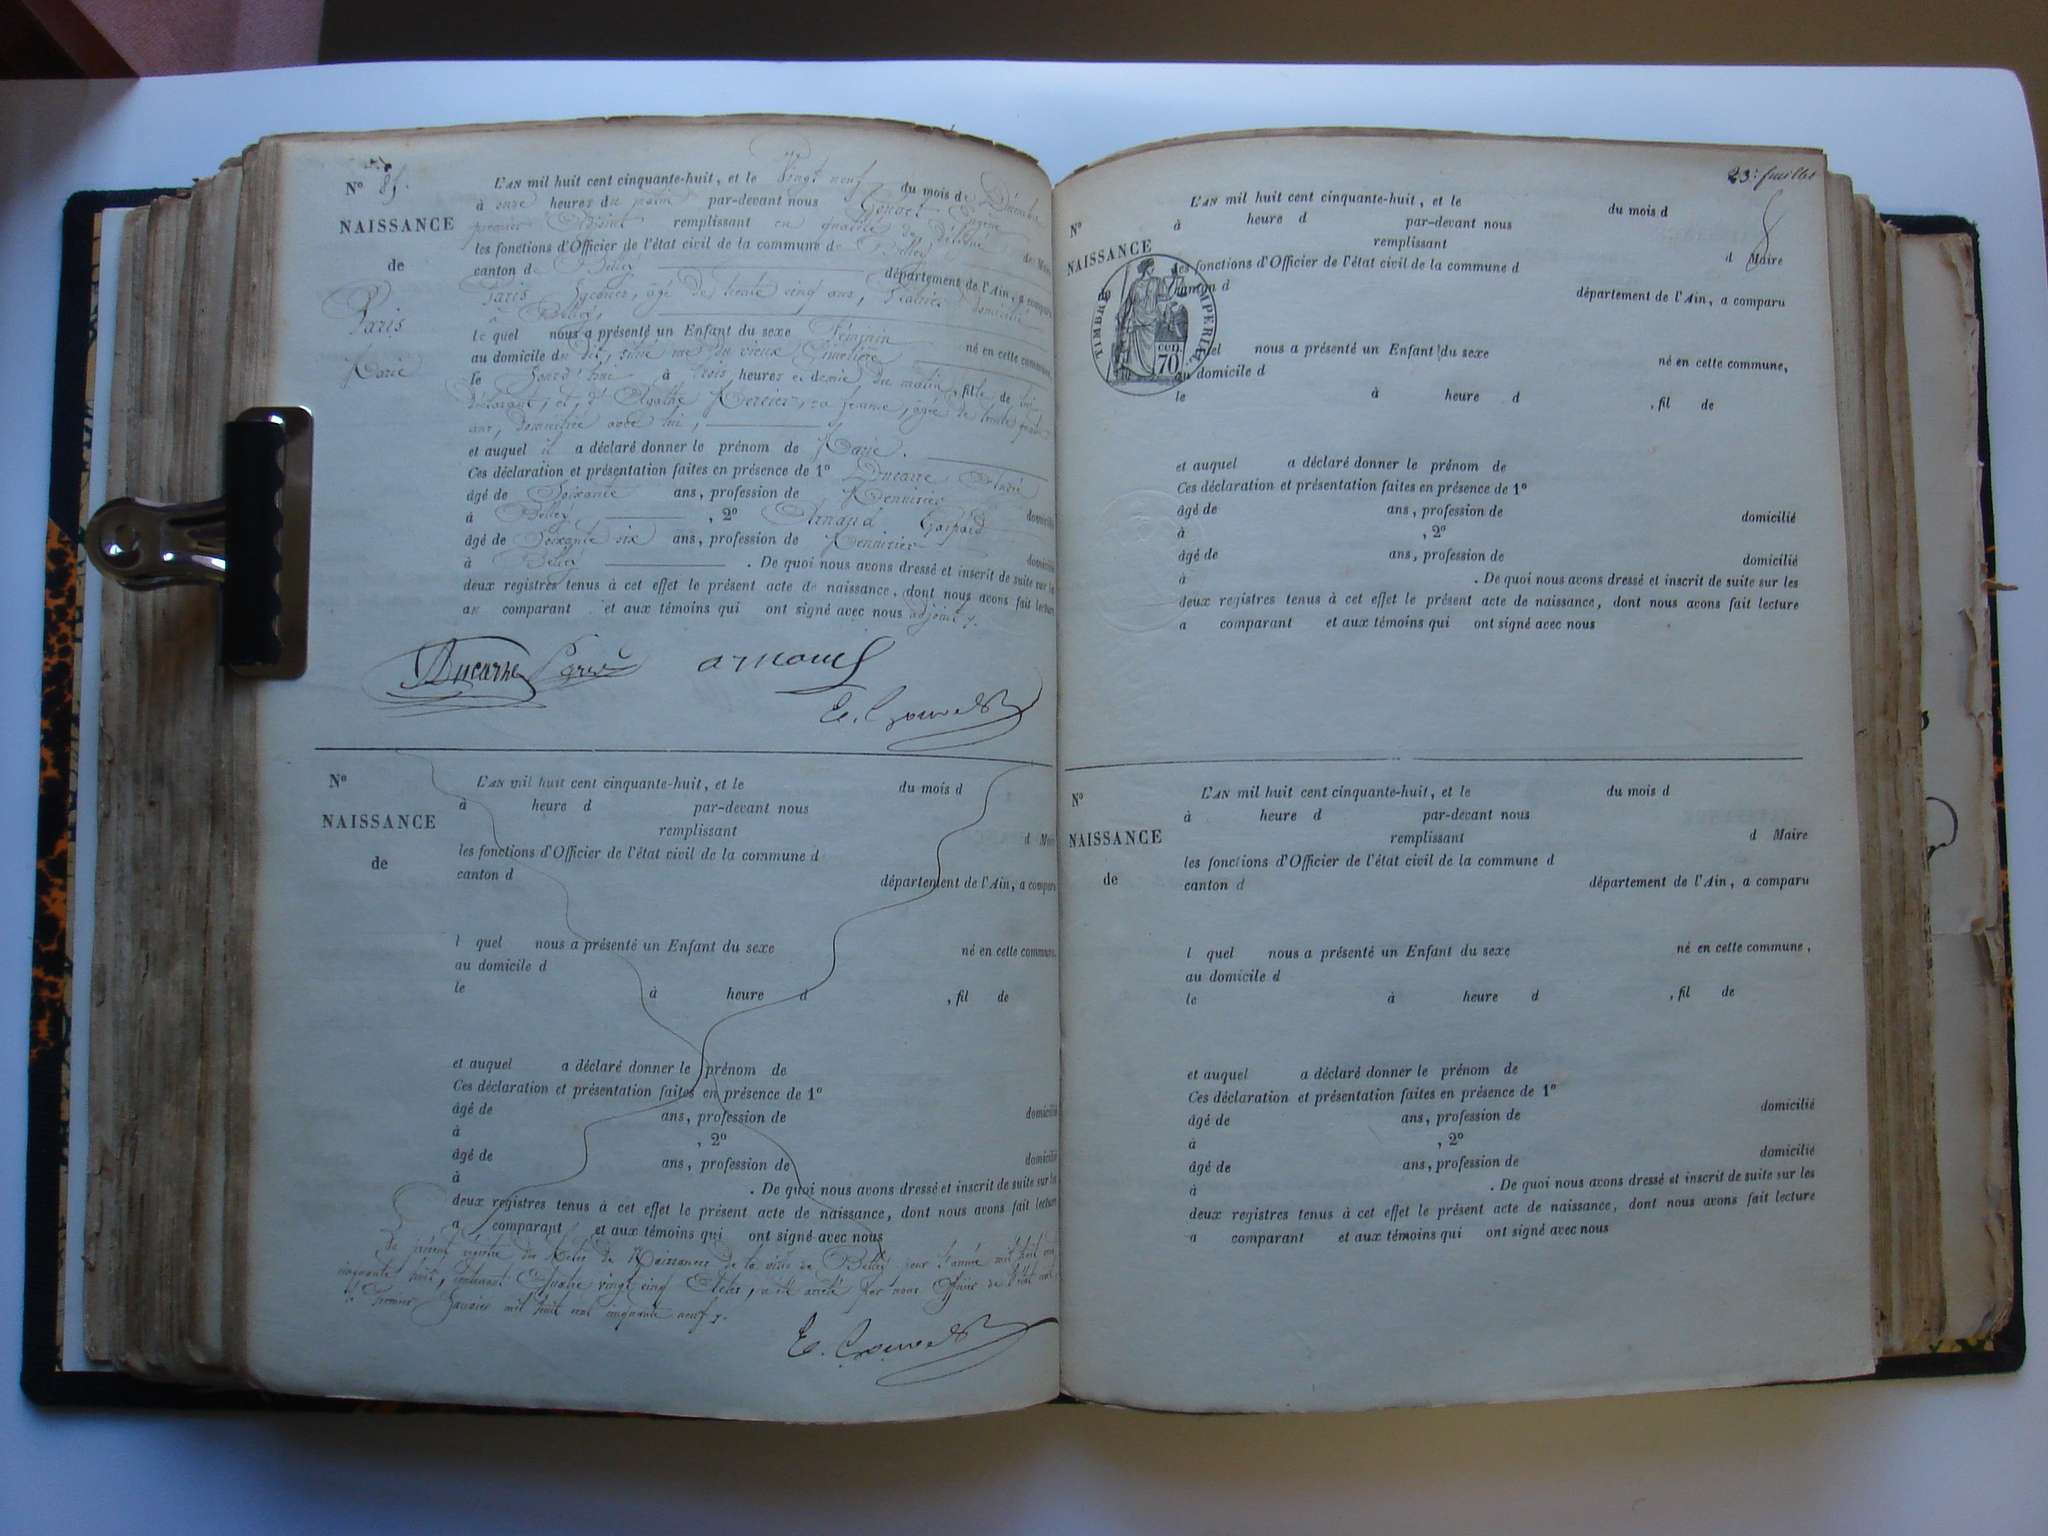 N° 85.
NAISSANCE
de
Paris
Marie
L'AN mil huit cent cinquante-huit, et le Vingt neuf du mois de Décembre
à onze heures du matin par-devant nous Gouvet
premier Adjoint remplissant en qualité de Délégué
les fonctions d'Officier de l'état civil de la commune de Belley du Maire
canton de Belley département de l'Ain, a comparu
Paris Jacques, âgé de trente cinq ans, domicilié
à Belley,
le quel nous a présenté un Enfant du sexe Féminin né en cette commune,
au domicile du dit, situé rue du vieux Cimetière
le Jourd'hui à trois heures et demie du matin, fille de lui
déclarant, et, d'Agathe Mercier, sa femme, âgée de trente quatre
ans, domiciliée avec lui,
et auquel il a déclaré donner le prénom de Marie.
Ces déclaration et présentation faites en présence de 1° Ducarre André
âgé de Soixante ans, profession de Menuisier domicilié
à Belley, 2° Arnaud Gaspard
âgé de Soixante six ans, profession de Menuisier domicilié
à Belley. De quoi nous avons dressé et inscrit de suite sur les
deux registres tenus à cet effet le présent acte de naissance, dont nous avons fait lecture
au comparant et aux témoins qui ont signé avec nous adjoint.
Ducarre Paris arnaud
E. Gouvet
N°
NAISSANCE
de
L'AN mil huit cent cinquante-huit, et le du mois d
à heure d par-devant nous
remplissant d Maire
les fonctions d'Officier de l'état civil de la commune d
canton d département de l'Ain, a comparu
l quel nous a présenté un Enfant du sexe né en cette commune,
au domicile d
le à heure d , fil de
et auquel a déclaré donner le prénom de
Ces déclaration et présentation faites en présence de 1°
âgé de ans, profession de domicilié
à , 2°
âgé de ans, profession de domicilié
à . De quoi nous avons dressé et inscrit de suite sur les
deux registres tenus à cet effet le présent acte de naissance, dont nous avons fait lecture
a comparant et aux témoins qui ont signé avec nous
Le présent registre des Actes de Naissances de la ville de Belley pour l'année mil huit cent
cinquante huit, contenant Quatre vingt cinq Actes, a été arrêté par nous Officier de l'état civil
le Premier Janvier mil huit cent cinquante neuf.
E. Gouvet
23e feuillet
N°
NAISSANCE
TIMBRE IMPERIAL
CEN. 70
L'AN mil huit cent cinquante-huit, et le du mois d
à heure d par-devant nous
remplissant d Maire
les fonctions d'Officier de l'état civil de la commune d
canton d département de l'Ain, a comparu
quel nous a présenté un Enfant du sexe né en cette commune,
au domicile d
le à heure d , fil de
et auquel a déclaré donner le prénom de
Ces déclaration et présentation faites en présence de 1°
âgé de ans, profession de domicilié
à , 2°
âgé de ans, profession de domicilié
à . De quoi nous avons dressé et inscrit de suite sur les
deux registres tenus à cet effet le présent acte de naissance, dont nous avons fait lecture
a comparant et aux témoins qui ont signé avec nous
N°
NAISSANCE
de
L'AN mil huit cent cinquante-huit, et le du mois d
à heure d par-devant nous
remplissant d Maire
les fonctions d'Officier de l'état civil de la commune d
canton d département de l'Ain, a comparu
l quel nous a présenté un Enfant du sexe né en cette commune,
au domicile d
le à heure d , fil de
et auquel a déclaré donner le prénom de
Ces déclaration et présentation faites en présence de 1°
âgé de ans, profession de domicilié
à , 2°
âgé de ans, profession de domicilié
à . De quoi nous avons dressé et inscrit de suite sur les
deux registres tenus à cet effet le présent acte de naissance, dont nous avons fait lecture
a comparant et aux témoins qui ont signé avec nous